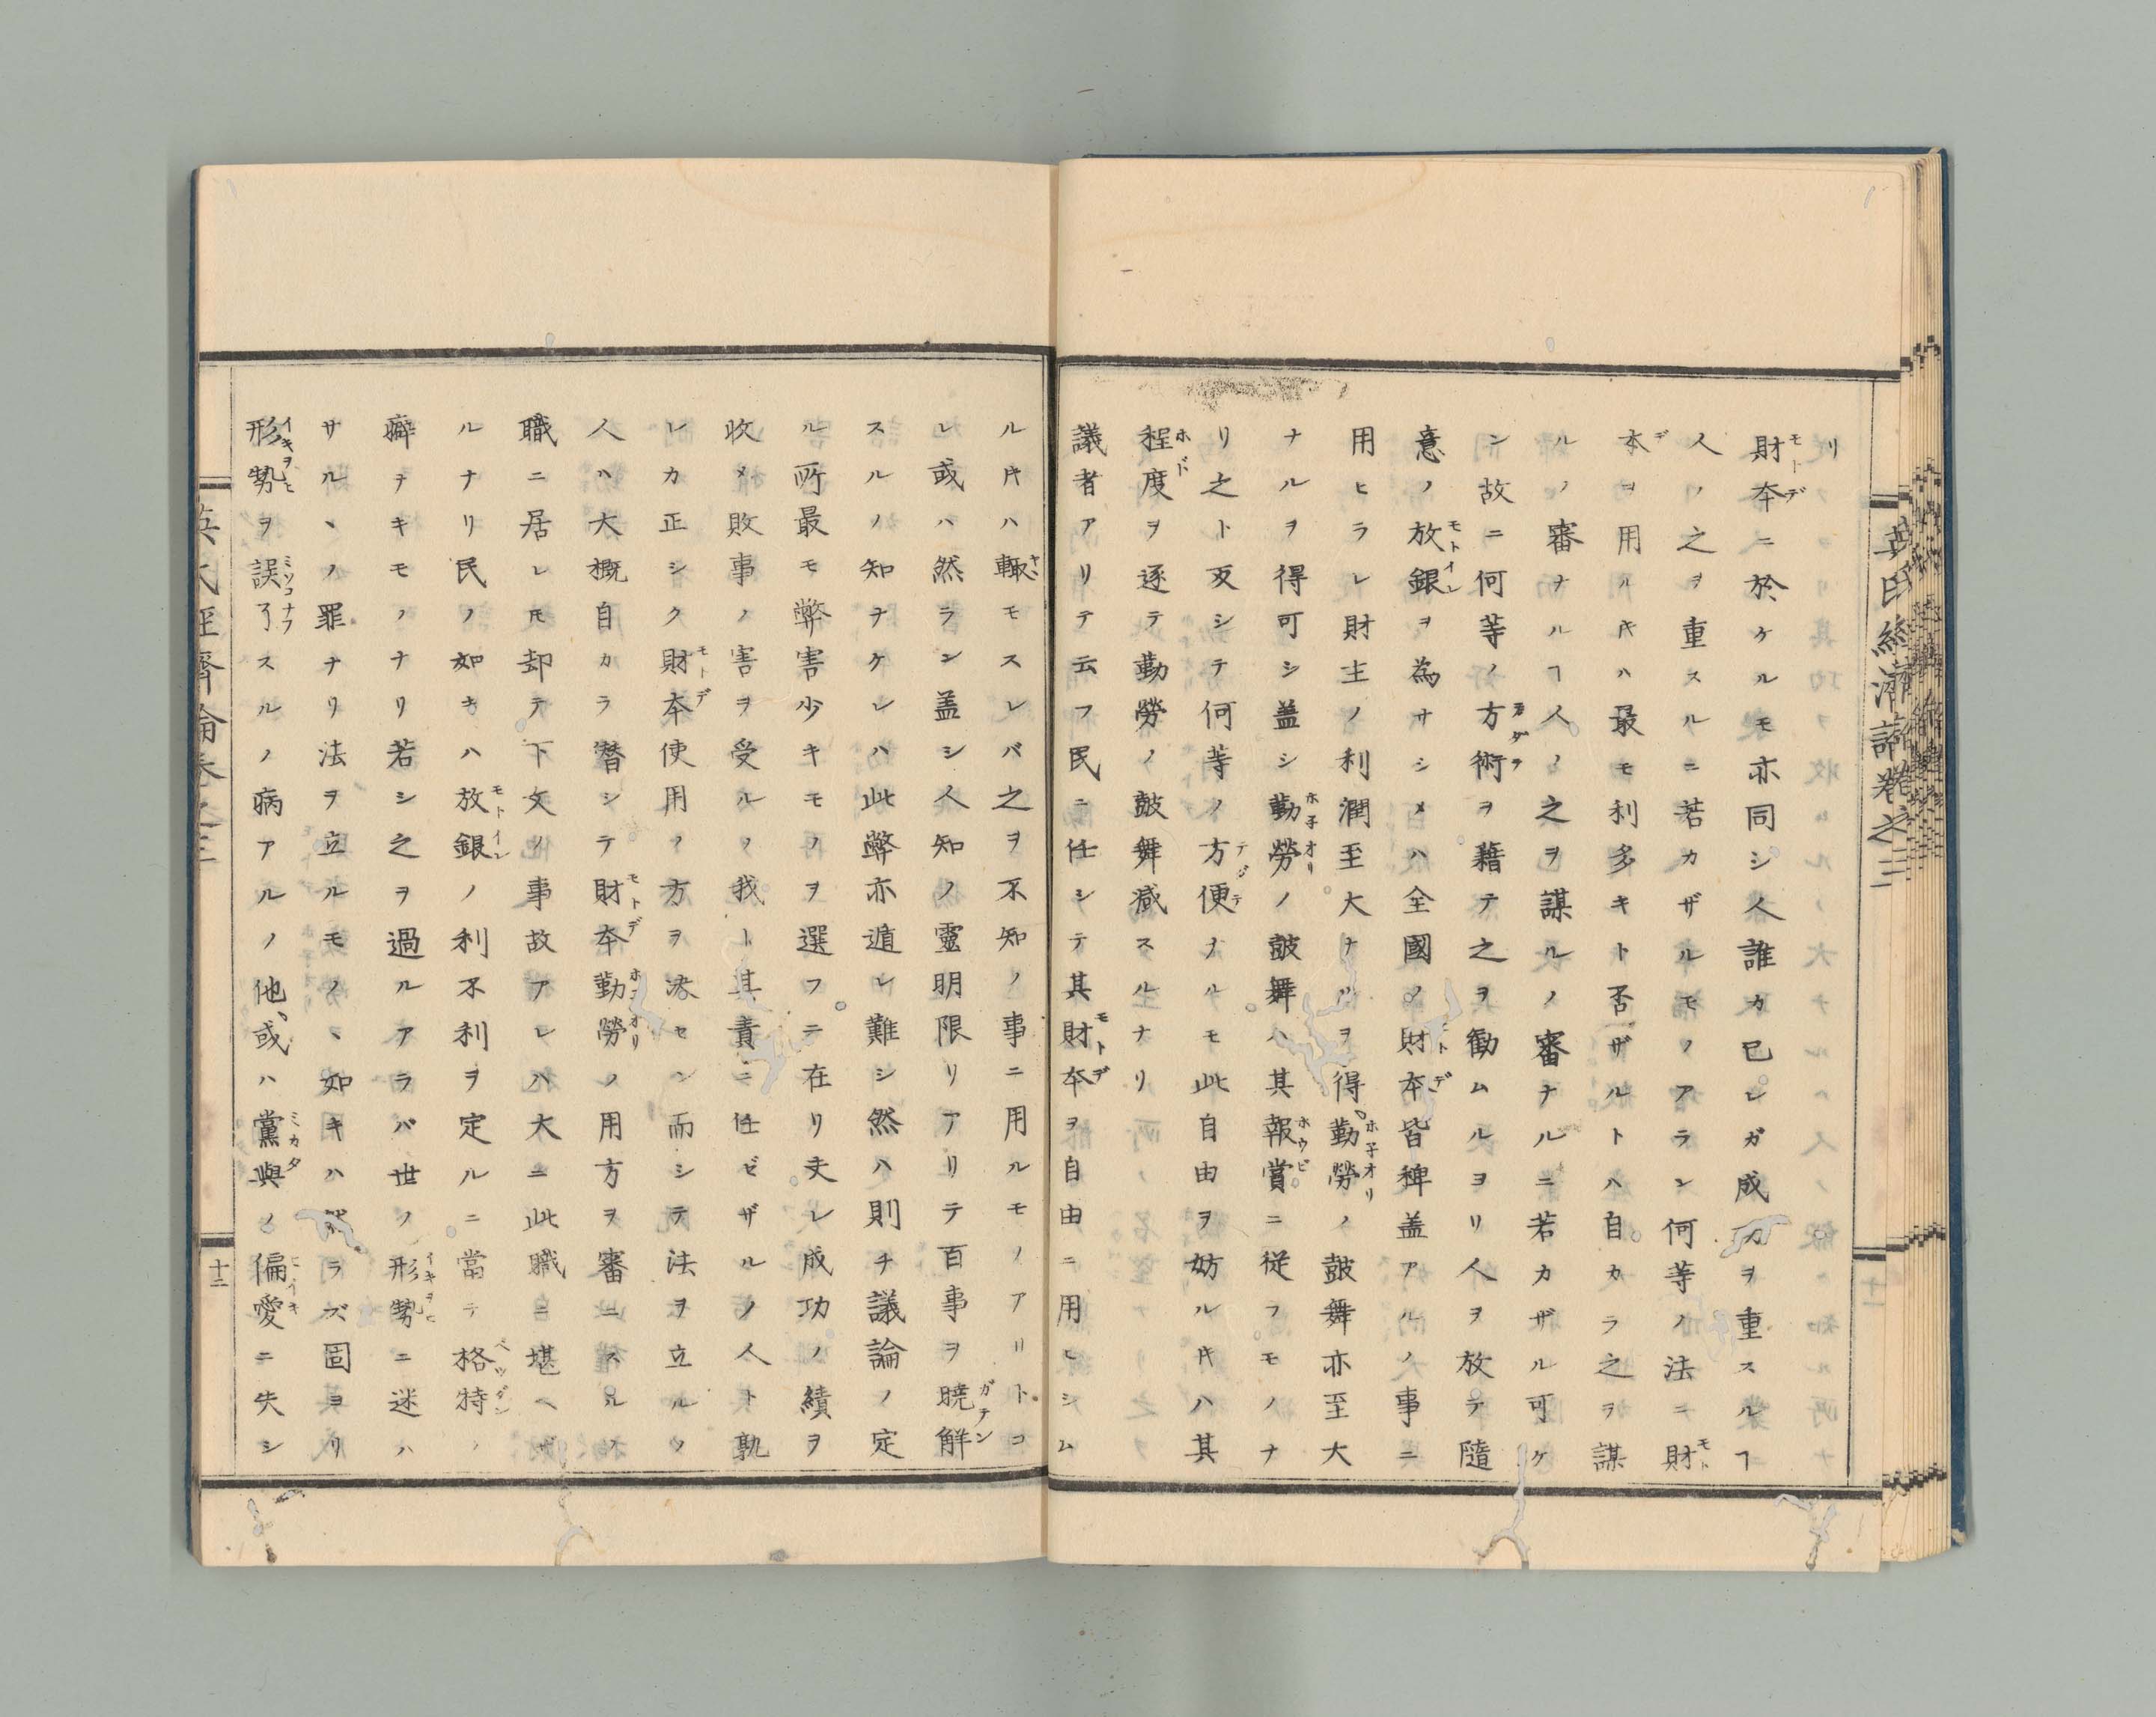 リ
財本ニ於ケルモ亦同シ人誰カ已レガ成カヲ重スルヿ
人ノ之ヲ重スルニ若カザルモノアラン何等ノ法ニテ財
本ヲ用ルキハ最モ利多キト否ザルトハ自カラ之ヲ謀
ルノ審ナルヿ人ノ之ヲ謀ルノ審ナルニ若カザル可ケ
ン故ニ何等ノ方術ヲ藉テ之ヲ勧ムルヨリ人ヲ放テ隨
意ノ放銀ヲ為サシメハ全國ノ財本皆稗益アルノ事ニ
用ヒラレ財主ノ利潤至大ナルヲ得勤勞ノ鼓舞亦至大
ナルヲ得可シ蓋シ勤勞ノ鼓舞ハ其報賞ニ従フモノナ
リ之ト反シテ何等ノ方便ナルモ此自由ヲ妨ルキハ其
程度ヲ逐テ勤勞ノ鼓舞減スルナリ
議者アリテ云フ民ニ任シテ其財本ヲ自由ニ用ヒシム
ルキハ輙モスレバ之ヲ不知ノ事ニ用ルモノアリトコ
レ或ハ然ラン蓋シ人知ノ靈明限リアリテ百事ヲ曉解
スルノ知ナケレハ此弊亦遁レ難シ然ハ則チ議論ノ定
ル所最モ弊害少キモノヲ選フニ在リ夫レ成功ノ績ヲ
收メ敗事ノ害ヲ受ルノ我ト其責ニ任ゼザルノ人ト孰
レカ正シク財本使用ノ方ヲ决セン而シテ法ヲ立ルノ
人ハ大概自カラ替シテ財本勤勞ノ用方ヲ審ニスルノ
職ニ居レモ却テ下文ノ事故アレハ大ニ此職ニ堪ヘザ
ルナリ民ノ如キハ放銀ノ利不利ヲ定ルニ當テ格特ノ
癖ヲキモノナリ若シ之ヲ過ルアラバ世ノ形勢ニ迷ハ
サルヽノ罪ナリ法ヲ立ルモノヽ如キハ然ラズ固ヨリ
形勢ヲ誤了スルノ病アルノ他、或ハ黨與ノ偏愛ニ失シ
英氏經濟論卷之三
十一
英氏經濟論卷之三
十二